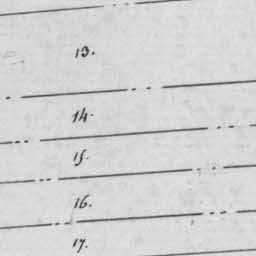 13.
14.
15.
16.
17.